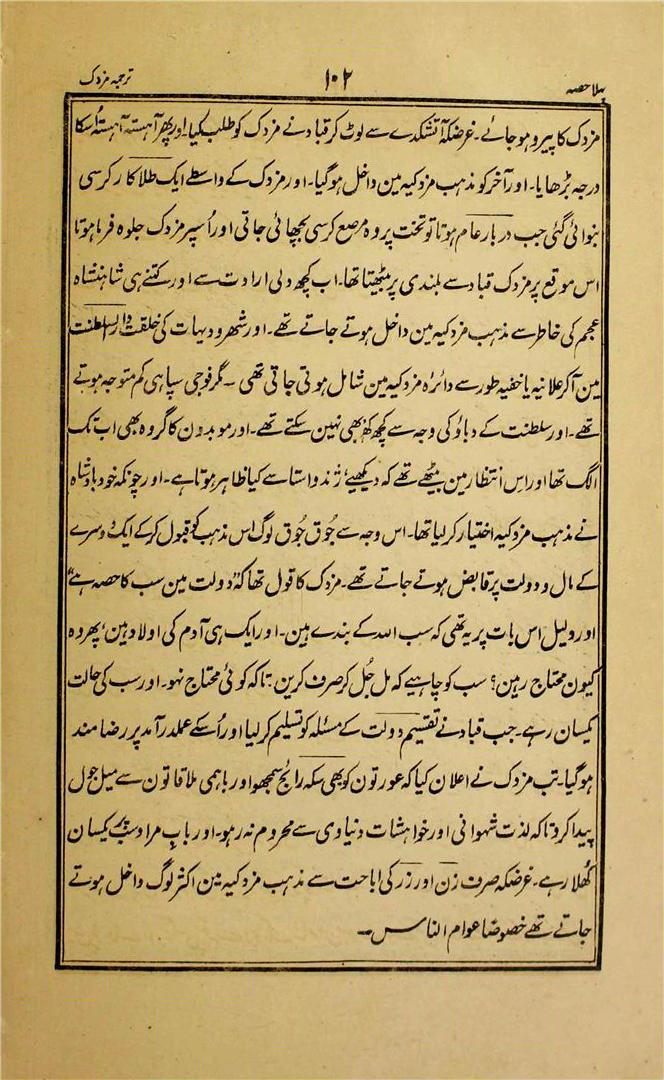 پہلا حصہ ۱۰۲ ترجمہ مزدک
مزدک کا پیرو ہو جائے۔ غرضکہ آتشکدے سے لوٹ کر قباد نے مزدک کو طلب کیا۔ اور پھر آہستہ آہستہ اُسکا
درجہ بڑھایا۔ اور آخر کو مذہب مزدکیہ مین داخل ہو گیا۔ اور مزدک کے واسطے ایک طلا کار کرسی
بنوائی گئی جب دربار عام ہوتا تو تخت پر وہ مرصع کرسی بچھائی جاتی اور اُسپر مزدک جلوہ فرما ہوتا
اس موقع پر مزدک قباد سے بلندی پر بیٹھتا تھا۔ اب کچھ دلی ارادت سے اور کتنے ہی شاہنشاہ
عجم کی خاطر سے مذہب مزدکیہ مین داخل ہوتے جاتے تھے۔ اور شہر و دیہات کی خلقت دارالسلطنت
مین آکر علانیہ یا خفیہ طور سے دائرہ مزدکیہ مین شامل ہوتی جاتی تھی۔ مگر فوجی سپاہی کم متوجہ ہوتے
تھے۔ اور سلطنت کے دباؤ کی وجہ سے کچھ کہہ بھی نہین سکتے تھے۔ اور موبدون کا گروہ بھی اب تک
الگ تھا اور اس انتظار مین بیٹھے تھے کہ دیکھیے ژند و استا سے کیا ظاہر ہوتا ہے۔ اور چونکہ خود بادشاہ
نے مذہب مزدکیہ اختیار کر لیا تھا۔ اس وجہ سے جُوق جُوق لوگ اس مذہب کو قبول کر کے ایک دوسرے
کے مال و دولت پر قابض ہوتے جاتے تھے۔ مزدک کا قول تھا کہ "دولت مین سب کا حصہ ہے"
اور دلیل اس بات پر یہ تھی کہ سب اللہ کے بندے ہین۔ اور ایک ہی آدم کی اولاد ہین، پھر وہ
کیون محتاج رہین؟ سب کو چاہیے کہ مل جُل کر صرف کرین۔ تاکہ کوئی محتاج نہو۔ اور سب کی حالت
یکسان رہے۔ جب قباد نے تقسیم دولت کے مسئلہ کو تسلیم کر لیا اور اُسکے عملدرآمد پر رضامند
ہو گیا۔ تب مزدک نے اعلان کیا کہ عورتون کو بھی سکہ رائج سمجھو اور باہمی ملاقاتون سے میل جول
پیدا کرو تاکہ لذت شہوانی اور خواہشات دنیاوی سے محروم نہ رہو۔ اور باب مراد سب پر یکسان
کُھلا رہے۔ غرضکہ صرف زن اور زر کی اباحت سے مذہب مزدکیہ مین اکثر لوگ داخل ہوتے
جاتے تھے خصوصًا عوام الناس۔